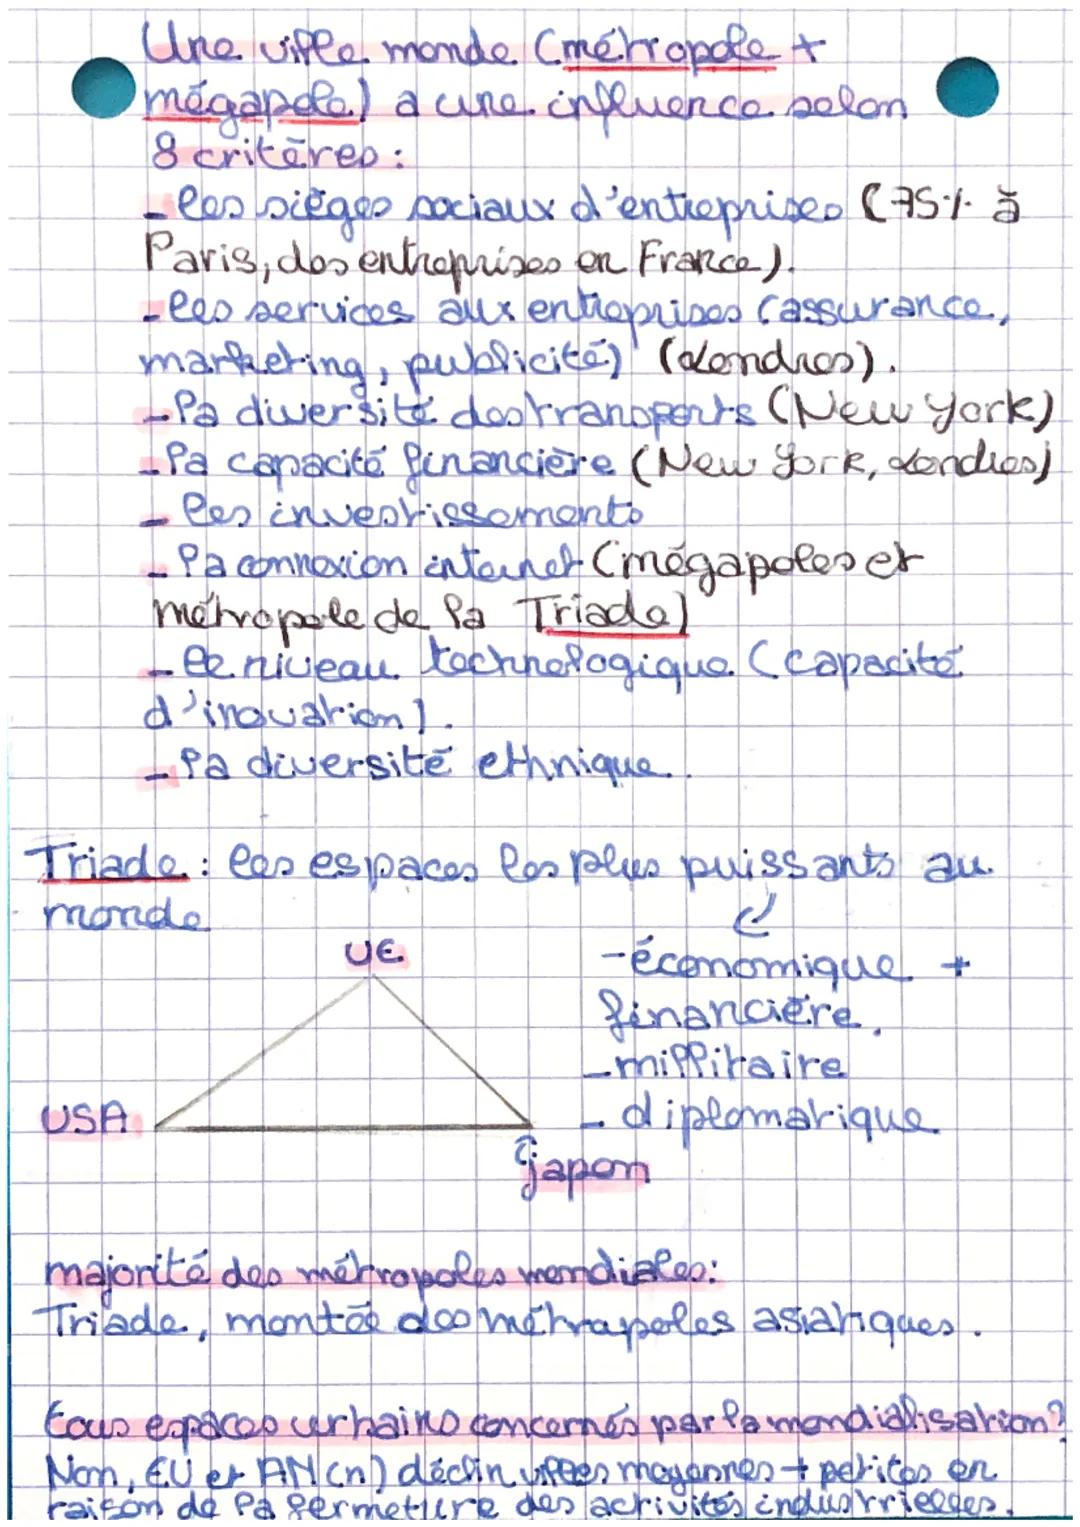 Une ville monde (métropole +
mégapole) a une influence selon
8 critères :
- les sièges sociaux d'entreprises (75% à
Paris, des entreprises en France).
- les services aux entreprises (assurance,
marketing, publicité) (Londres).
- la diversité des transports (New York)
- la capacité financière (New York, Londres)
- les investissements
- la connexion internet (mégapoles et
métropole de la Triade)
- le niveau technologique (capacité
d'inovation).
- la diversité ethnique.
Triade : les espaces les plus puissants au
monde
UE
- économique +
financière.
- millitaire
USA
- diplomatique
japon
majorité des métropoles mondiales :
Triade, montée des métrapoles asiatiques.
tous espaces urbains concernés par la mondialisation?
Non, EU et AN(n) déclin villes moyennes + petites en
raison de la fermeture des activités industrrielles.